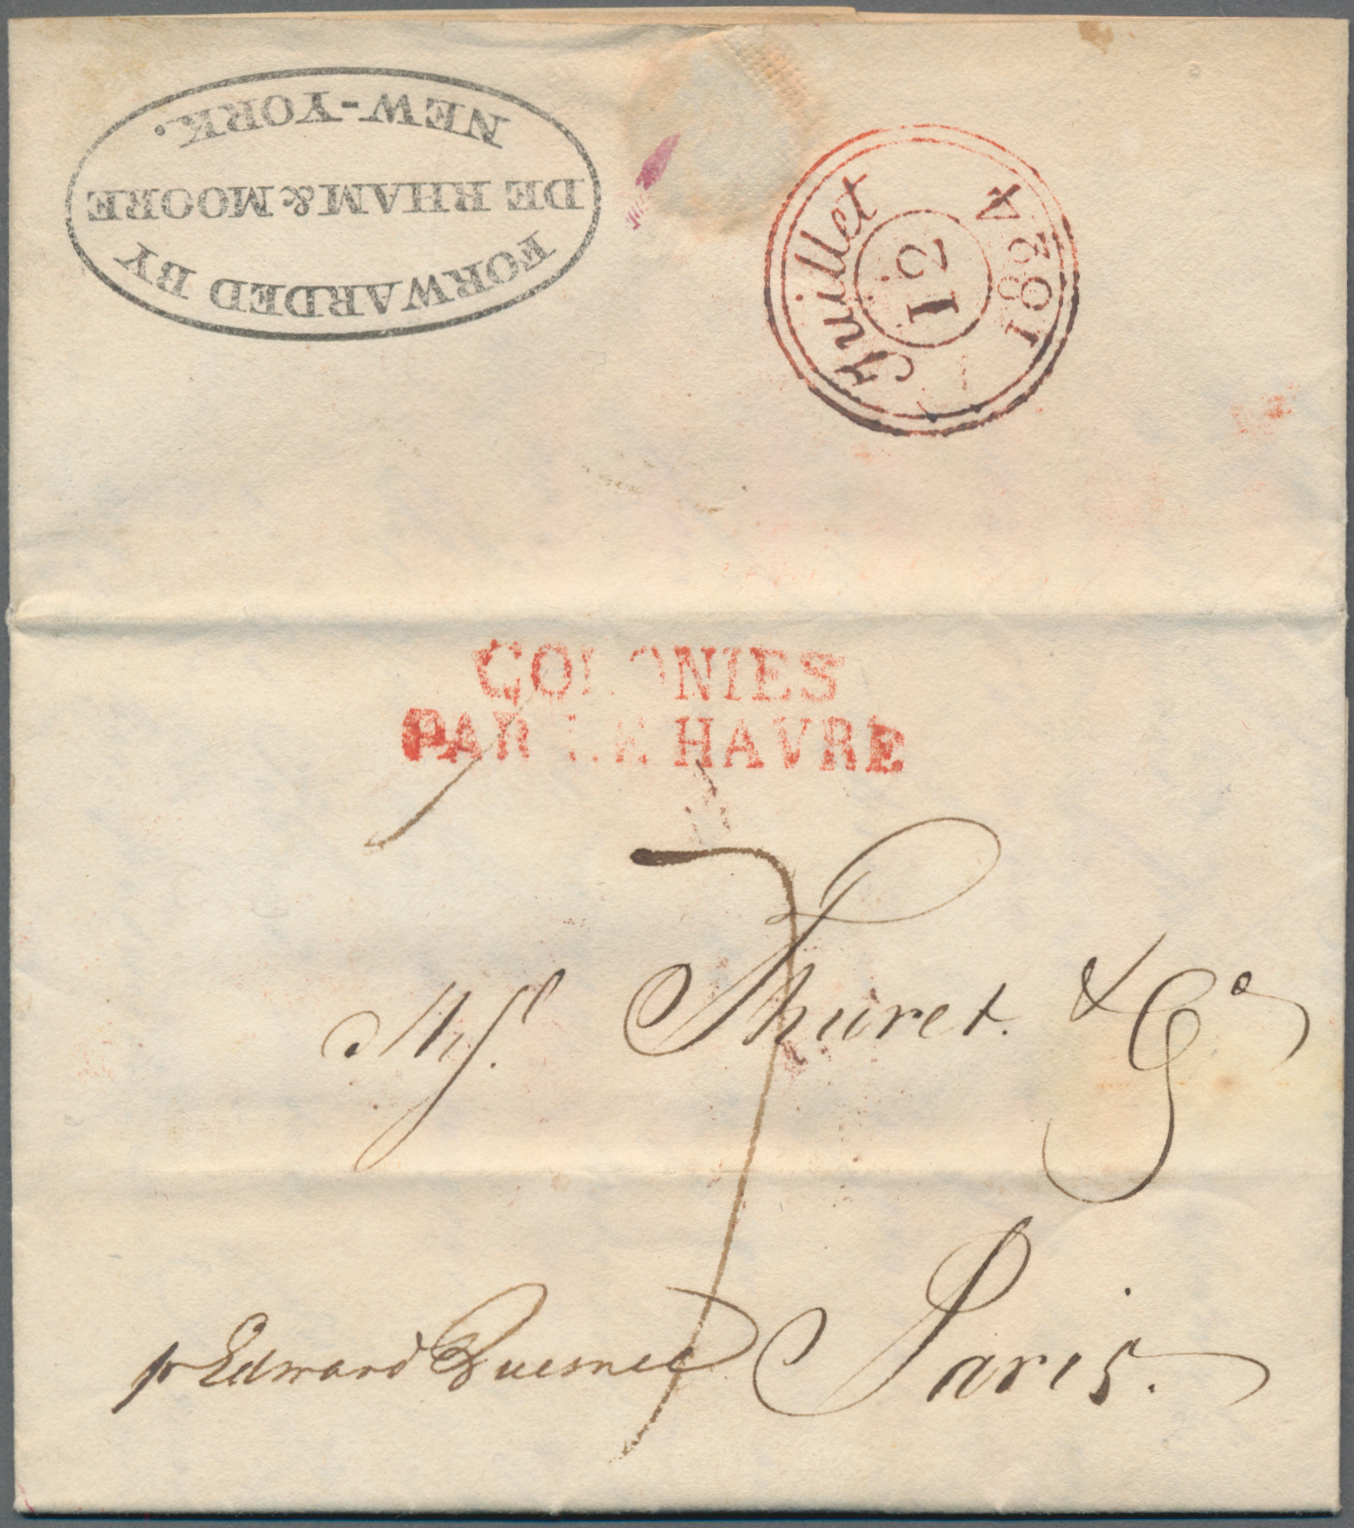 FORWARDED BY
DE RHAM & MOORE
NEW-YORK.
Juillet
12
1824
COLONIES
PAR LE HAVRE
7
Mssrs Thuret & Co
Paris.
pr Edward Quesnel